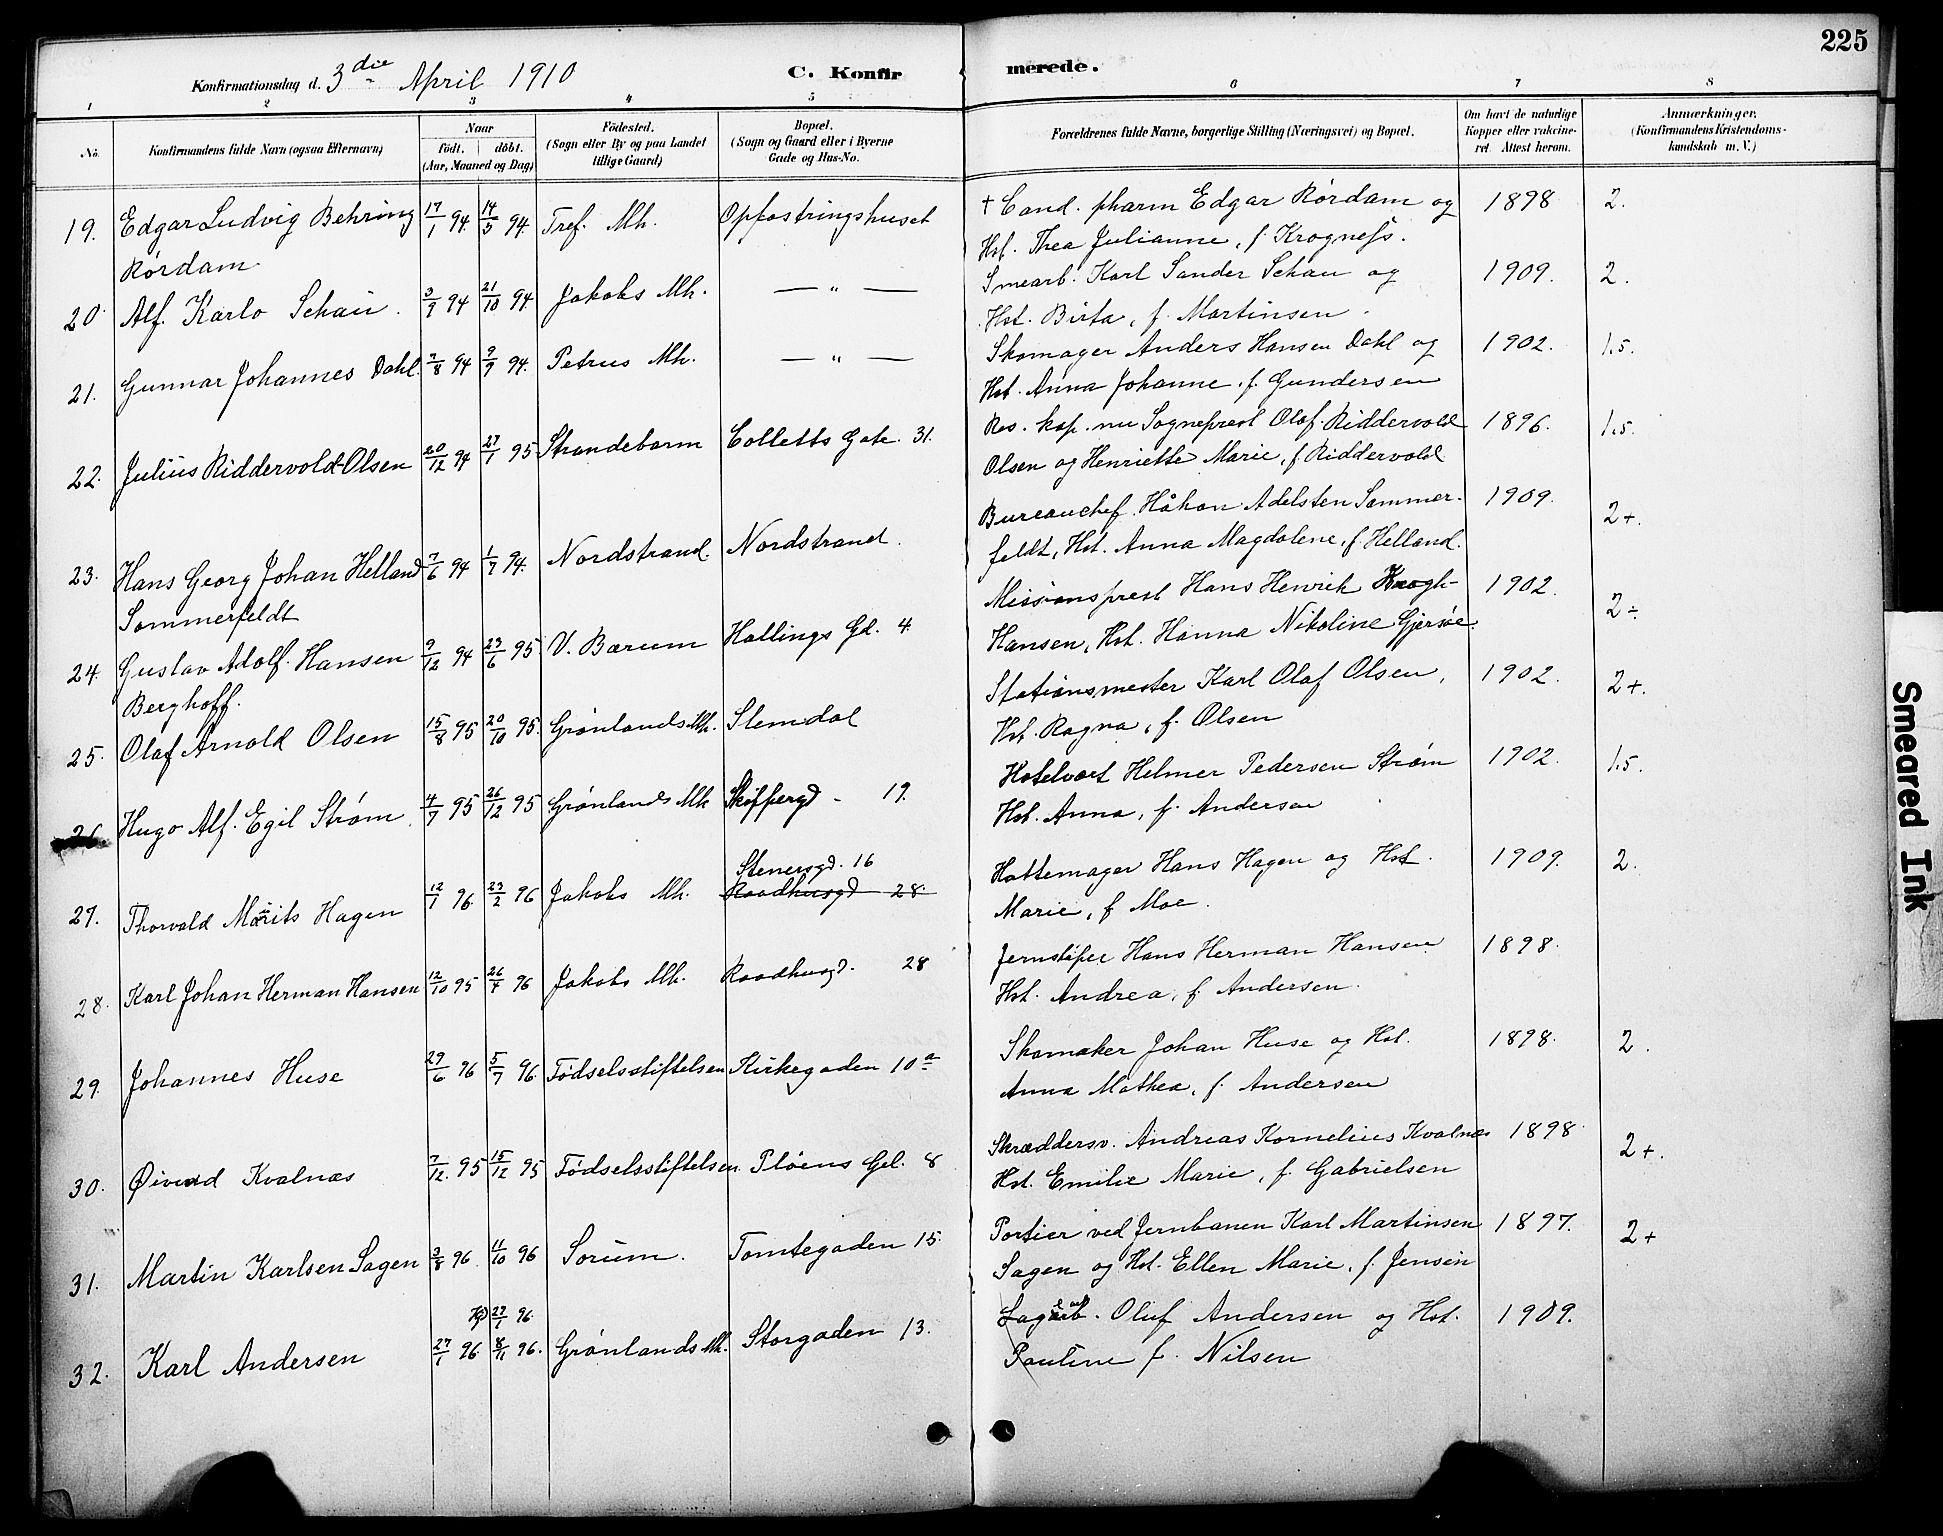 225
Konfirmationsdag d. 3die April 1910
C. Konfirmerede.
1 2 3 4 5 6 7 8
No.
Konfirmandens fulde Navn (ogsaa Efternavn)
Naar
født. døbt.
(Aar, Maaned og Dag)
Fødested.
(Sogn eller By og paa Landet
tillige Gaard)
Bopæl.
(Sogn og Gaard eller i Byerne
Gade og Hus-No.
Forældrenes fulde Navne, borgerlige Stilling (Næringsvei) og Bopæl.
Om havt de naturlige
Kopper eller vakcine-
ret. Attest herom.
Anmærkninger.
(Konfirmandens Kristendoms-
kundskab m. V.)
19. Edgar Ludvig Behring 17/1 94. 14/5 94. Tref. Mh. Opfostringshuset † Cand. pharm Edgar Rørdam og 1898 2.
Rørdam Hst. Thea Julianne, f. Krogness.
20. Alf. Karlo Schau. 3/9 94 21/10 94. Jakobs Mh. — " — Smearb. Karl Sander Schau og 1909. 2.
Hst. Birta, f. Martinsen.
21. Gunnar Johannes Dahl. 7/8 94 9/9 94. Petrus Mh. — " — Skomager Anders Hansen Dahl og 1902. 1.5.
Hst. Anna Johanne. f. Gundersen
22. Julius Riddervold-Olsen 20/12 94 27/1 95 Strandebarm Colletts Gate. 31. Res. kap. nu Sogneprest Olaf Riddervold 1896. 1.5.
Olsen og Henriette Marie, f. Riddervold
23. Hans Georg Johan Helland 7/6 94 1/7 94. Nordstrand. Nordstrand. Bureauchef. Håkon Adelsten Sommer- 1909. 2+.
Sommerfeldt feldt, Hst. Anna Magdalene, f. Helland.
24. Gustav Adolf. Hansen 9/12 94 23/6 95 V. Bærum Hallings Gd. 4. Missionsprest Hans Henrik Krogh- 1902. 2÷
Berghoff. Hansen, Hst. Hanna Nikoline Gjerøe.
25. Olaf Arnold Olsen 15/8 95 20/10 95. Grønlands Mh. Slemdal Stationsmester Karl Olaf Olsen, 1902. 2+.
Hst. Ragna, f. Olsen
26. Hugo Alf. Egil Strøm 4/7 95 26/12 95 Grønlands Mh Skippergd - 19. Hotelvært Helmer Pedersen Strøm 1902. 1.5.
Hst. Anna, f. Andersen
Stenersgd. 16
27. Thorvald Marits Hagen 12/1 96 23/2 96 Jakobs Mh. Raadhusgd 28. Hattemager Hans Hagen og Hst. 1909. 2.
Marie, f. Moe.
28. Karl Johan Herman Hansen 12/10 95 26/4 96 Jakobs Mh. Raadhusgd. 28 Jernstøper Hans Herman Hansen 1898.
Hst. Andrea, f. Andersen.
29. Johannes Huse 29/6 96 5/7 96 Fødselsstiftelsen Kirkegaden 10a Skomaker Johan Huse og Hst. 1898. 2.
Anna Mathea, f. Andersen
30. Øivind Kvalnæs 7/12. 95 15/12 95 Fødselsstiftelsen. Pløens Gd. 8 Skræddersv. Andreas Kornelius Kvalnæs 1898. 2+.
Hst. Emilie Marie, f. Gabrielsen
31. Martin Karlsen Sagen 3/8 96. 11/10 96 Sørum. Tomtegaden 15. Portier ved Jernbanen Karl Martinsen 1897. 2+
Sagen og Hst. Ellen Marie, f. Jensen
27/1 96.
32. Karl Andersen 27/1 96. 8/11 96. Grønlands Mh. Storgaden 13. Oluf Andersen og Hst. 1909.
Pauline f. Nilsen
Smeared Ink